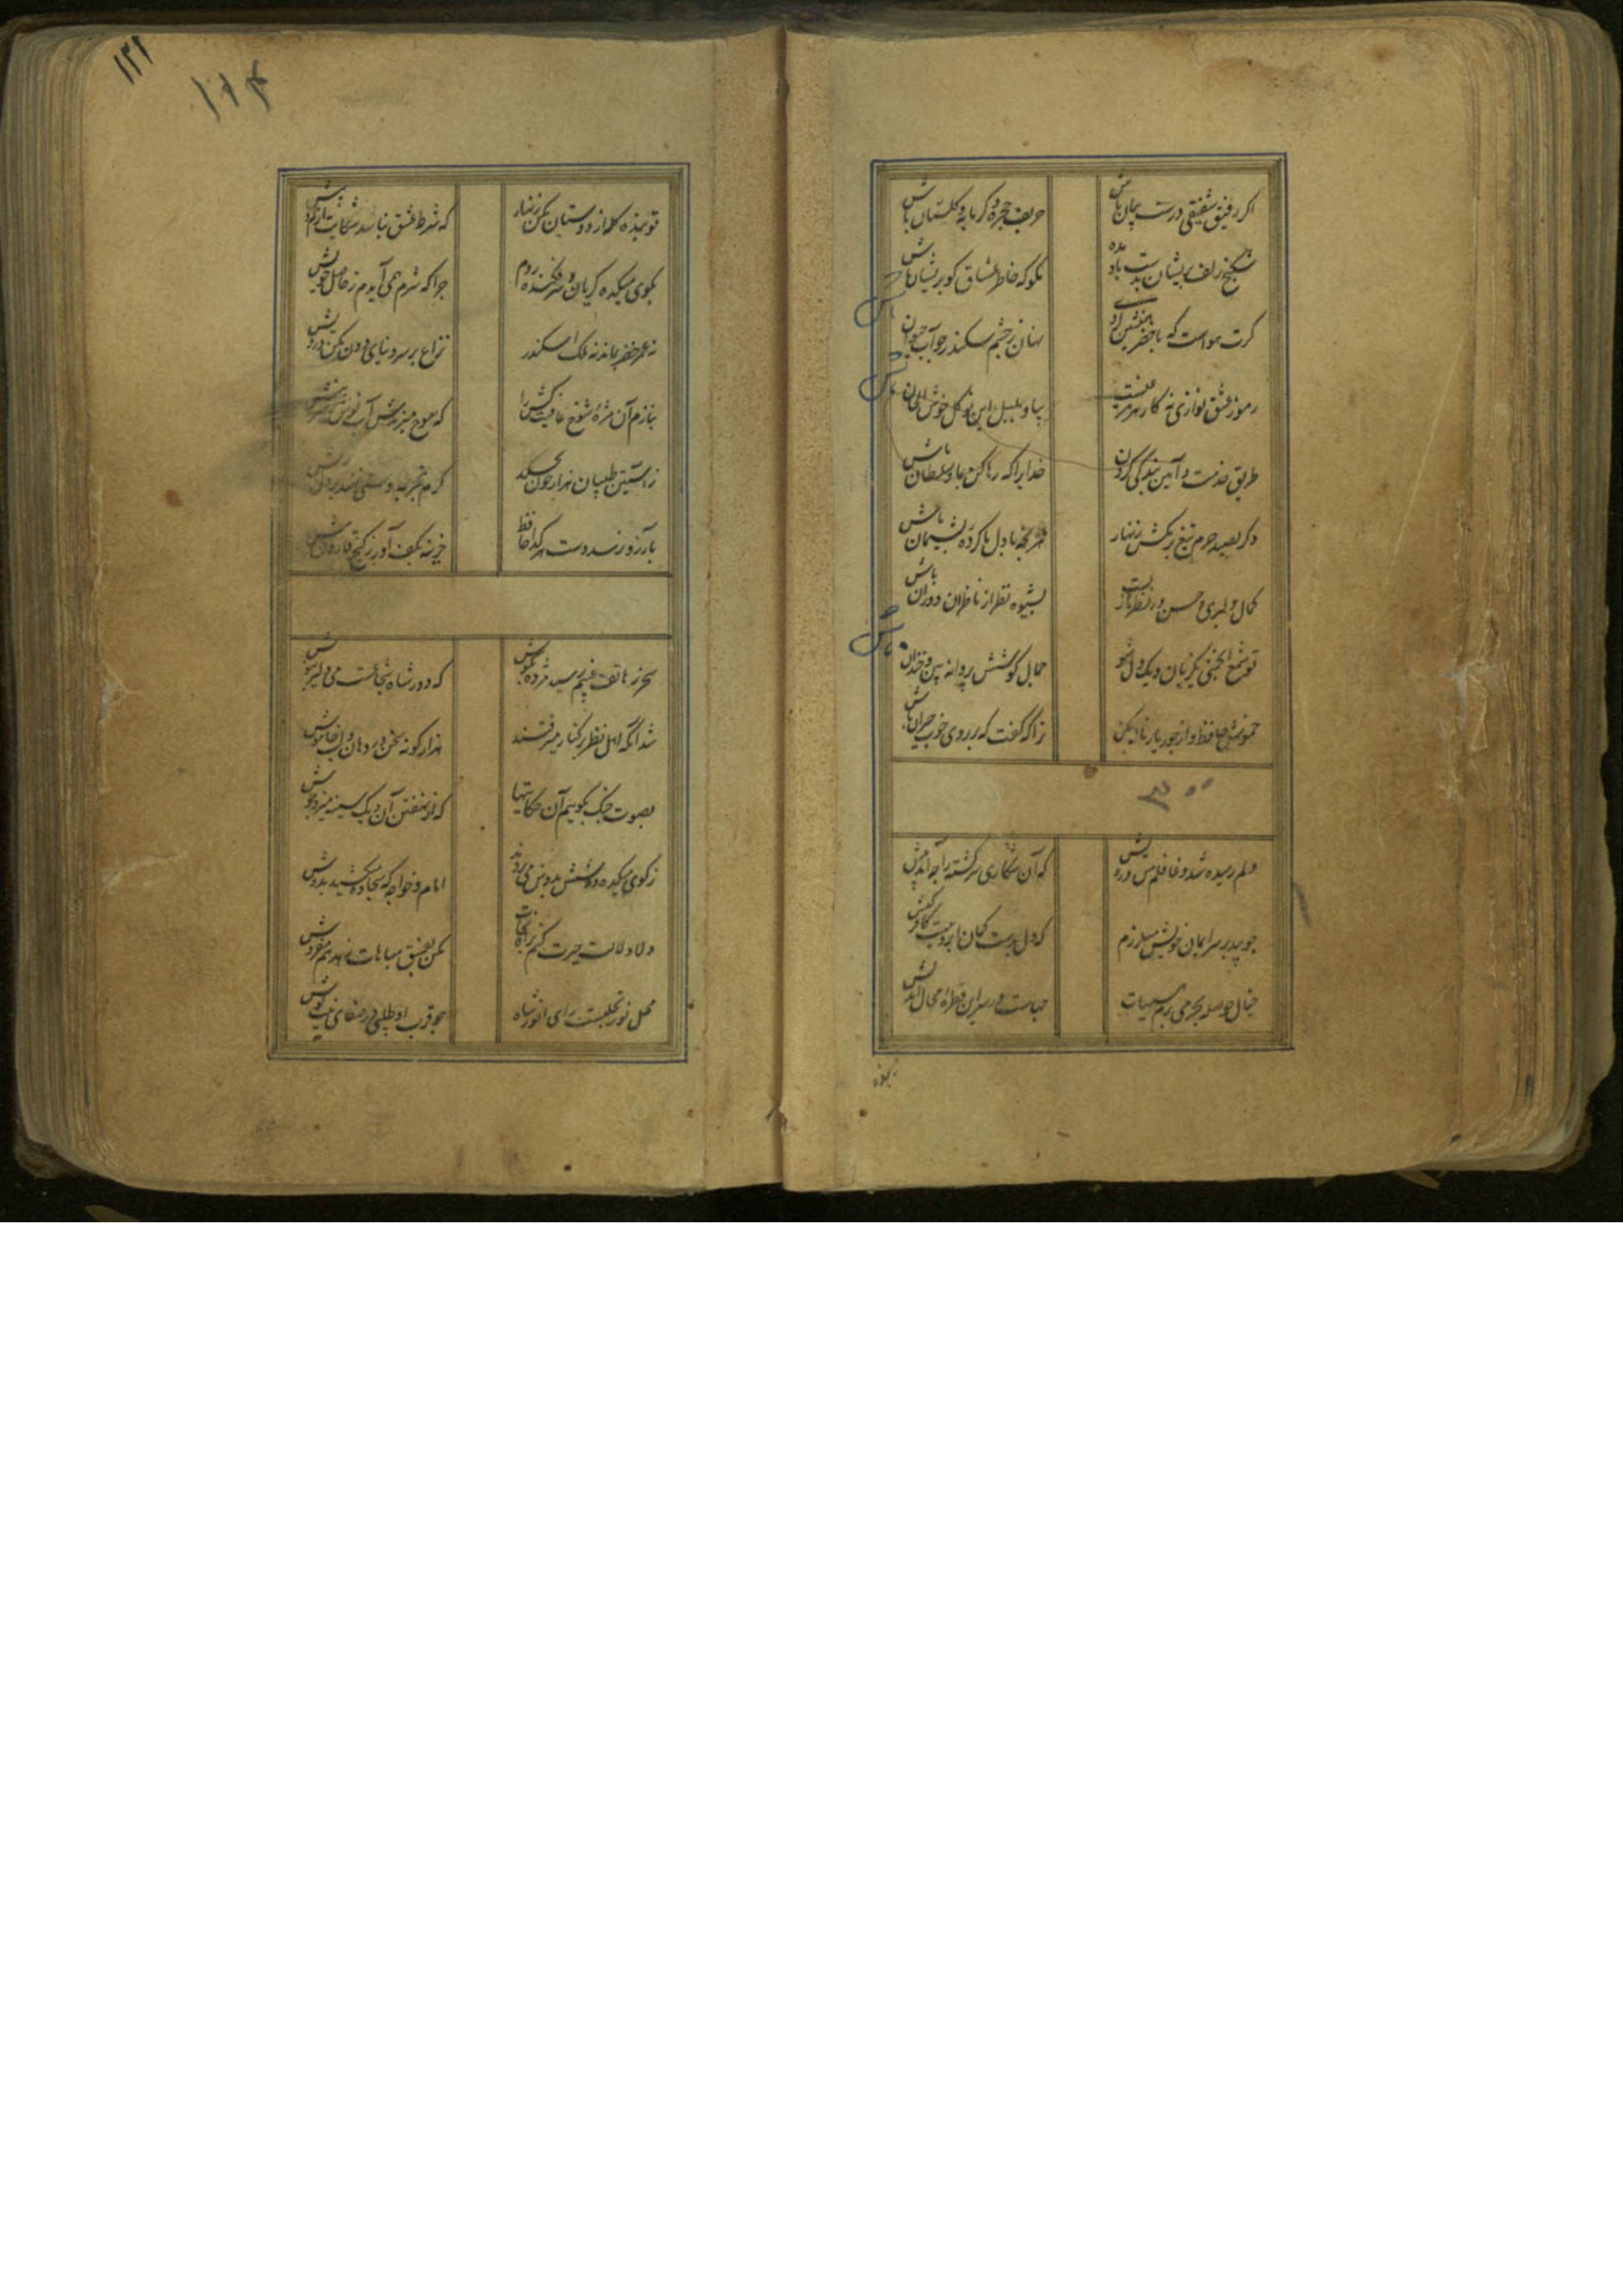 اکر رفیق شفیقی درست پیمان باش
حریف حجره و کرمابه و کلستان باش
شکنج زلف پریشان بدست باد مده
مکو که خاطر عشاق کو پریشان باش
کرت هواست که با خضر همنشین باشی
نهان ز چشم سکندر چو آب حیوان باش
رموز عشق نوازی نه کار هر مرغیست
بیا و بلبل این نو کل خوش الحان باش
طریق خدمت و آیین بندکی کردن
خدایرا که رها کن بما و سلطان باش
دکر بصید حرم تیغ برمکش زنهار
وز آنچه با دل ما کرده پشیمان باش
کمال دلبری و حسن در نظر بازیست
بشیوه نظر از ناظران دوران باش
تو شمع انجمنی یکزبان و یکدل شو
خیال کوشش پروانه بین و خندان
خموش حافظ و از جور یار ناله مکن
ترا که کفت که بر روی خوب حیران باش
۳۰۰
دلم رمیده شد و غافلم من درویش
که آن شکاری سرکشته را چه آمد پیش
چو بید بر سر ایمان خویش میلرزم
که دل بدست کمان ابروییست کافر کیش
خیال حوصله بحر می پزم هیهات
چهاست در سر این قطره محال اندیش
۱۲۲
تو بنده کله از دوستان مکن زنهار
که شرط عشق نباشد شکایت از کم و بیش
بکوی میکده کریان و سرفکنده روم
چرا که شرم همی آیدم ز حاصل خویش
نه عمر خضر بماند نه ملک اسکندر
نزاع بر سر دنیای دون مکن درویش
بنازم آن مژه شوخ عافیت کش را
که موج میزندش آب نوش بر سر نیش
ز آستین طبیبان هزار خون بچکد
کرم بتجربه دستی نهند بر دل ریش
بآرزو نرسد دست هر کدا حافظ
خزینه بکف آور ز کنج قارون بیش
سحر ز هاتف غیبم رسید مژده بکوش
که دور شاه شجاعست می دلیر بنوش
شد آنکه اهل نظر بر کناره میرفتند
هزار کونه سخن در دهان و لب خاموش
بصوت چنک بکوییم آن حکایتها
که از نهفتن آن دیک سینه میزد جوش
ز کوی میکده دوشش بدوش می بردند
امام خواجه که سجاده میکشید بدوش
دلا دلالت خیرت کنم براه نجات
مکن بفسق مباهات و زهد هم مفروش
محل نور تجلیست رای انور شاه
چو قرب او طلبی در صفای نیت کوش